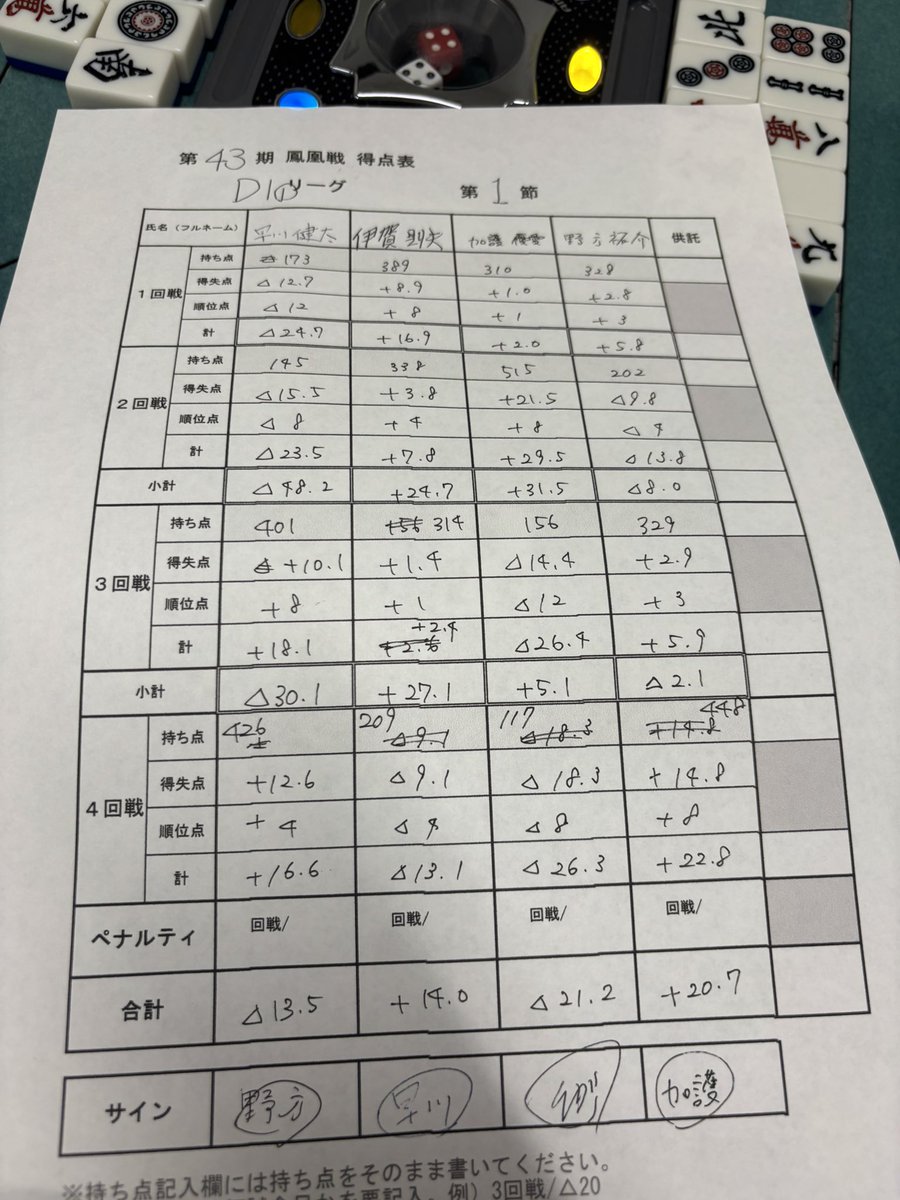 第 43 期 鳳凰戦 得点表
D1 リーグ 第 1 節
氏名（フルネーム） 早川 健太 伊賀 則矢 加護 優愛 野方 祐介 供託
1回戦 持ち点 173 389 310 328
得失点 △12.7 +8.9 +1.0 +2.8
順位点 △12 +8 +1 +3
計 △24.7 +16.9 +2.0 +5.8
2回戦 持ち点 145 338 515 202
得失点 △15.5 +3.8 +21.5 △9.8
順位点 △8 +4 +8 △4
計 △23.5 +7.8 +29.5 △13.8
小計 △48.2 +24.7 +31.5 △8.0
3回戦 持ち点 401 314 156 329
得失点 +10.1 +1.4 △14.4 +2.9
順位点 +8 +1 △12 +3
計 +18.1 +2.4 △26.4 +5.9
小計 △30.1 +27.1 +5.1 △2.1
4回戦 持ち点 426 209 △9.1 117 △18.3 448 +14.8
得失点 +12.6 △9.1 △18.3 +14.8
順位点 +4 △4 △8 +8
計 +16.6 △13.1 △26.3 +22.8
ペナルティ 回戦/ 回戦/ 回戦/ 回戦/
合計 △13.5 +14.0 △21.2 +20.7
サイン 野方 早川 加護
※持ち点記入欄には持ち点をそのまま書いてください。
要記入。例）3回戦/△20
六
萬
南
北
八
萬
九